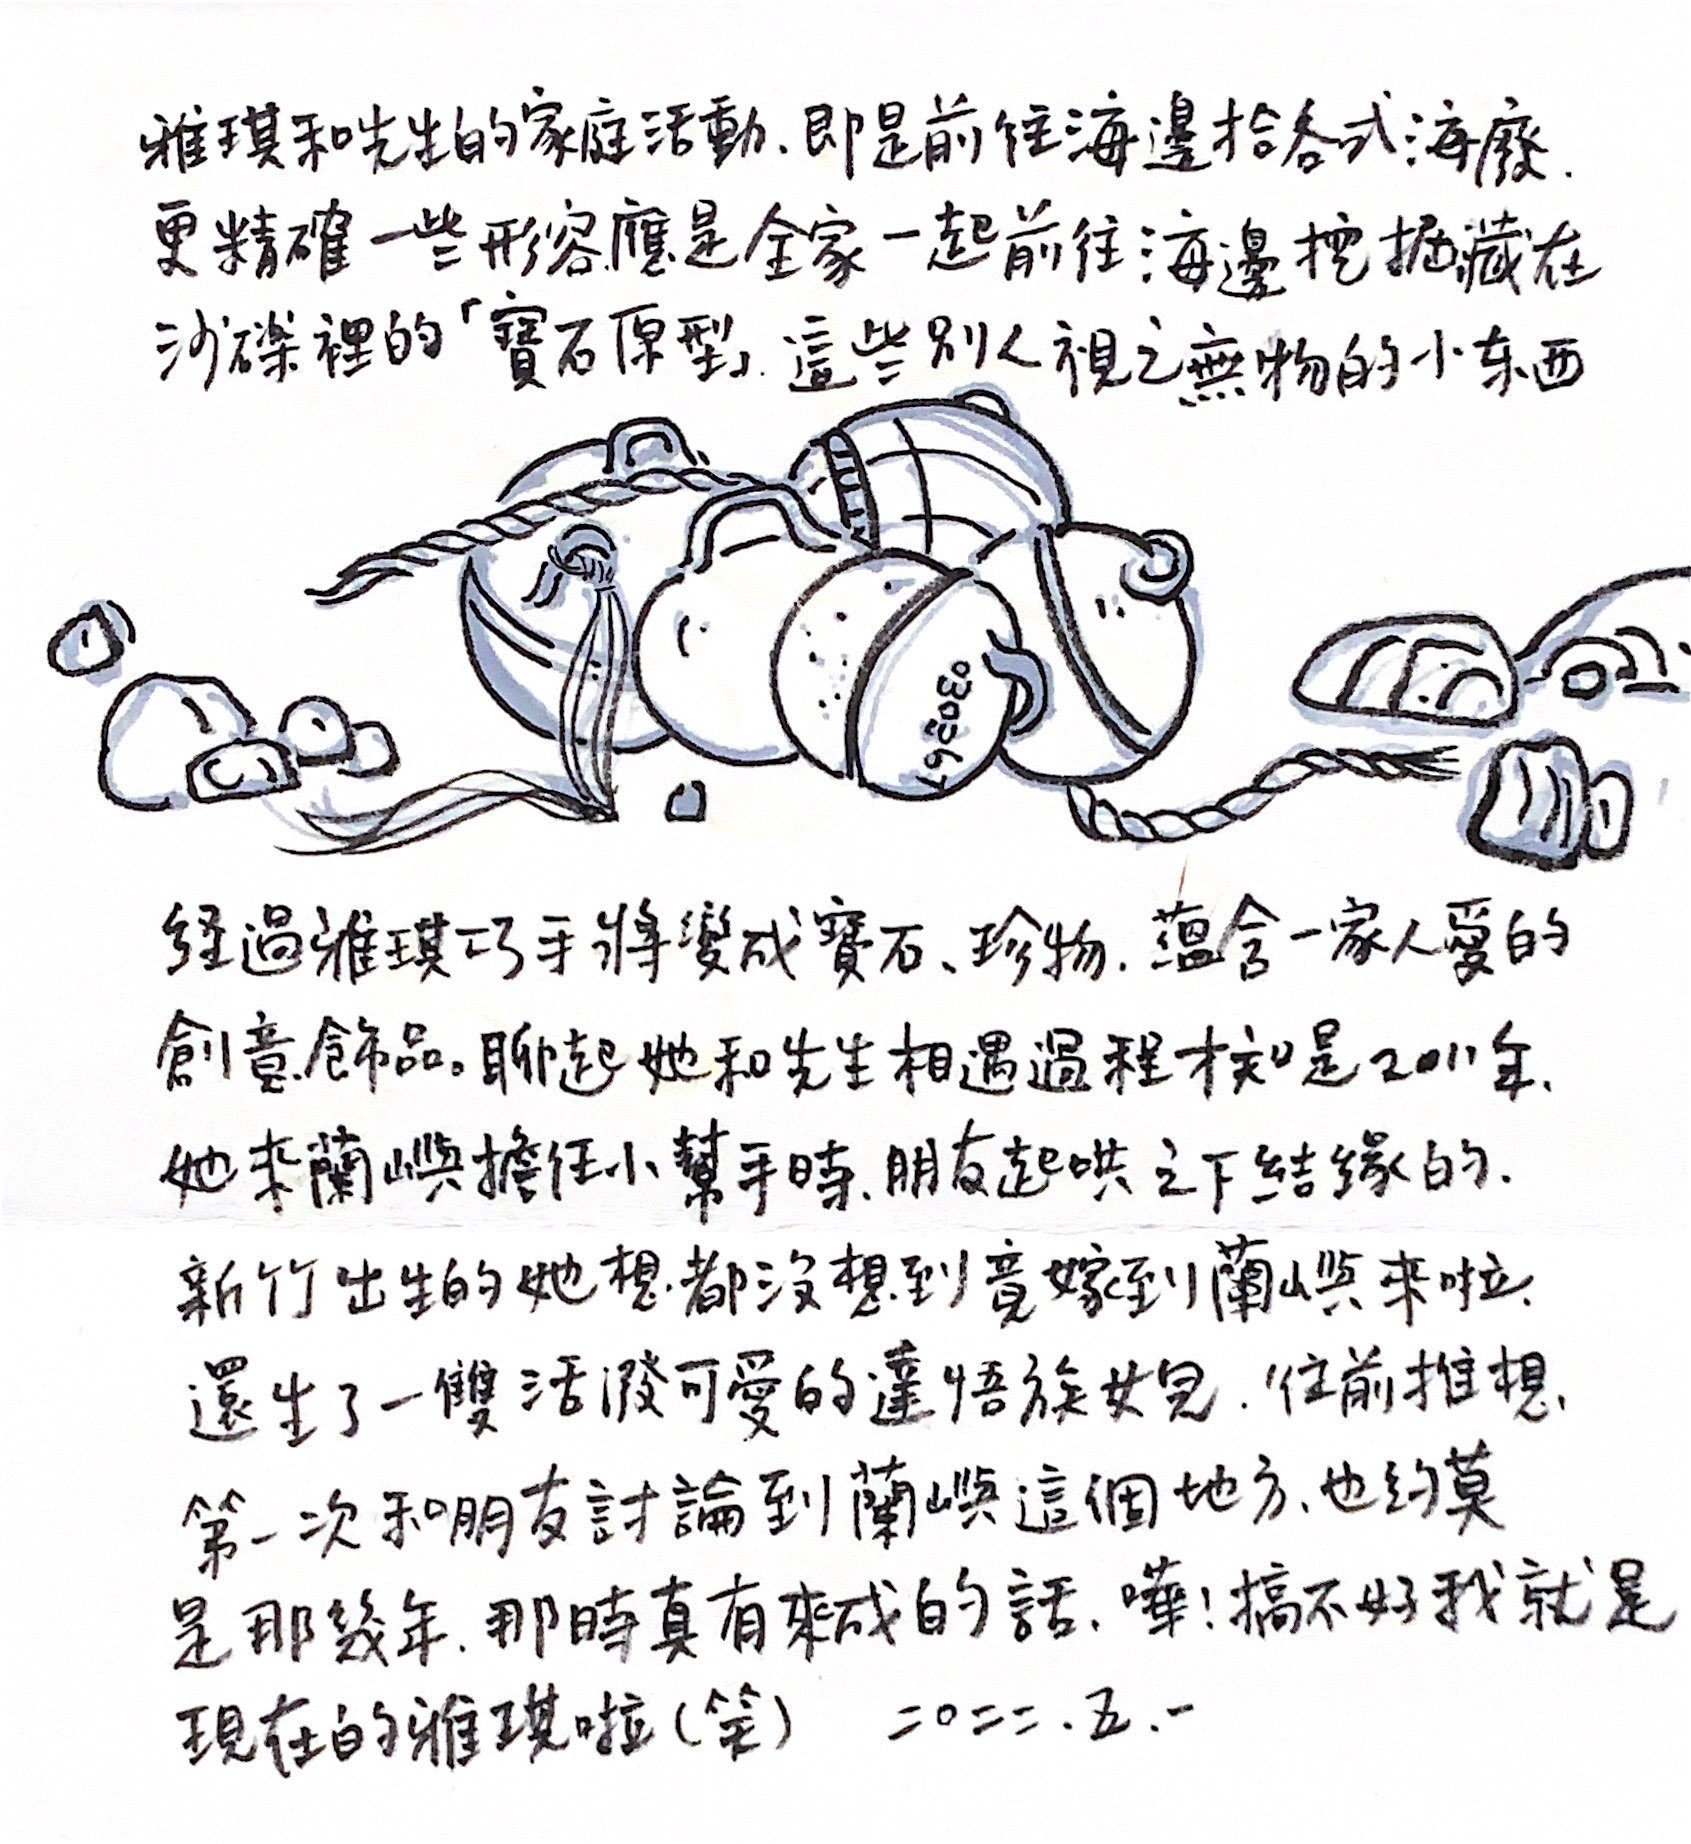 雅琪和先生的家庭活動、即是前往海邊拾各式海廢.
更精確一些形容應是全家一起前往海邊挖掘藏在
沙礫裡的「寶石原型」. 這些別人視之無物的小东西
經過雅琪巧手將變成寶石、珍物. 蘊含一家人愛的
創意飾品。聊起她和先生相遇過程才知是2011年、
她來蘭嶼擔任小幫手時、朋友起哄之下結緣的.
新竹出生的她想都沒想到竟嫁到蘭嶼來啦、
還生了一雙活潑可愛的達悟族女兒. 往前推想、
第一次和朋友討論到蘭嶼這個地方、也約莫
是那幾年. 那時真有來成的話、嘩！搞不好我就是
現在的雅琪啦（笑） 二〇二二.五.一